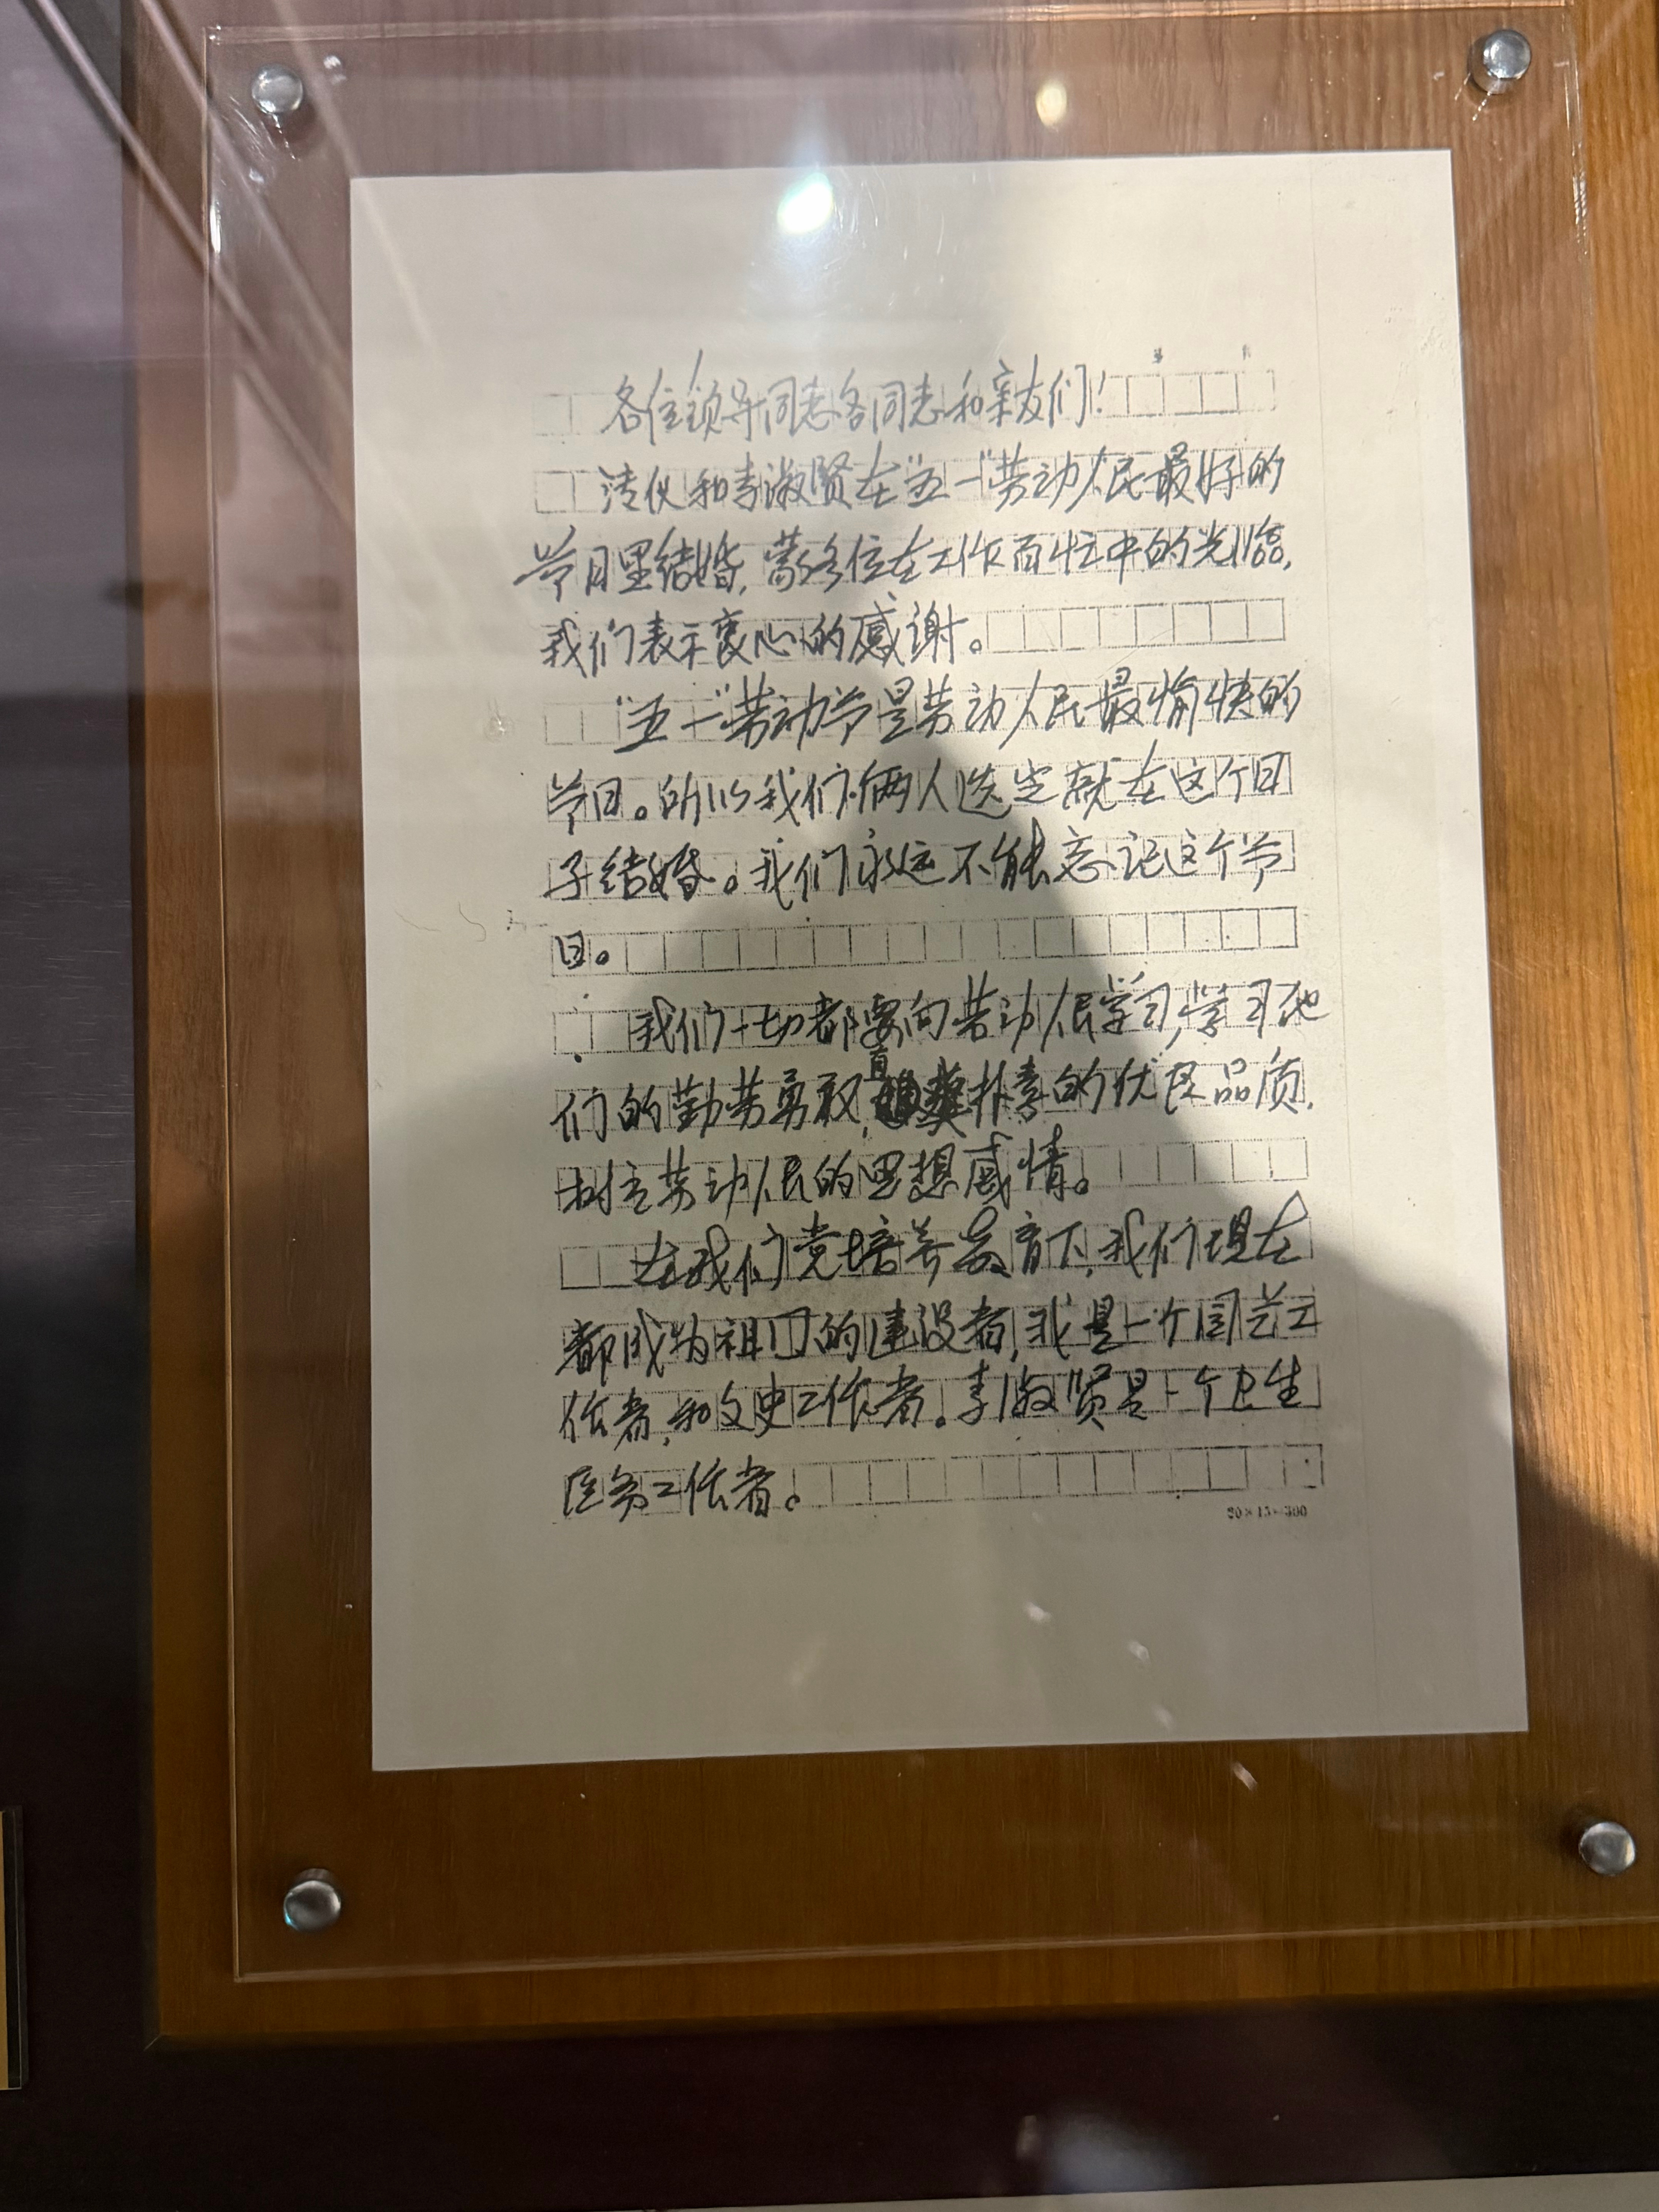 各位领导同志各同志和亲友们！
溥仪和李淑贤在"五一"劳动人民最好的
节日里结婚，蒙各位在工作百忙中的光临，
我们表示衷心的感谢。
"五一"劳动节是劳动人民最愉快的
节日。所以我们俩人选定就在这个日
子结婚。我们永远不能忘记这个节
日。
我们一切都要向劳动人民学习，学习他
们的勤劳勇敢，直朴素的优良品质，
树立劳动人民的思想感情。
在我们党培养教育下，我们现在
都成为祖国的建设者，我是一个园艺工
作者，和文史工作者。李淑贤是一个卫生
医务工作者。
20×15=300